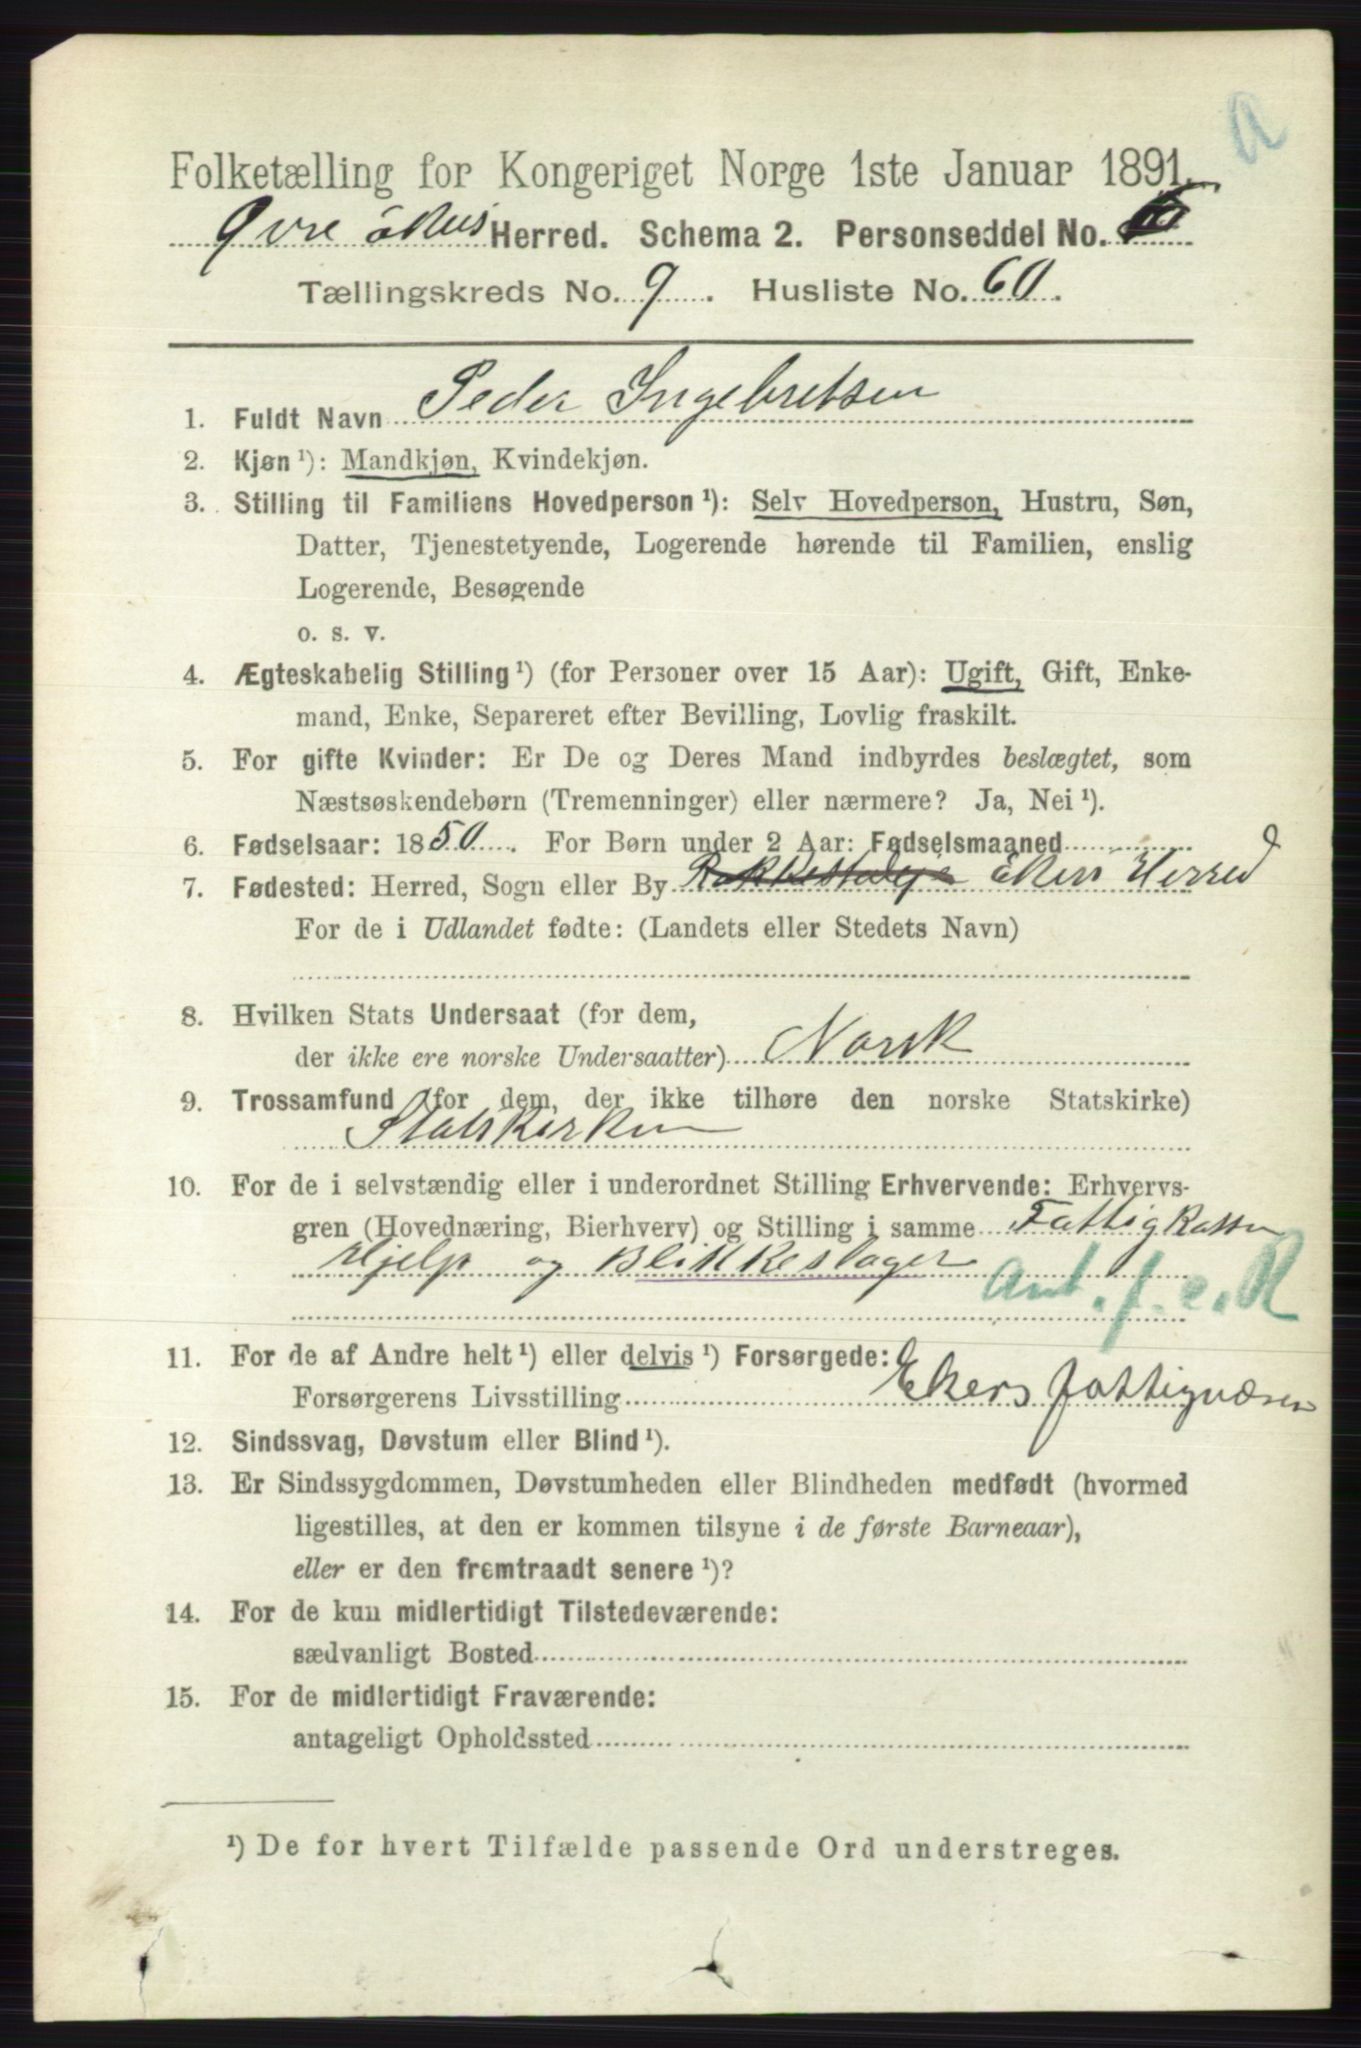 Folketælling for Kongeriget Norge 1ste Januar 1891.
Øvre Ekers Herred. Schema 2. Personseddel No.
Tællingskreds No. 9. Husliste No. 60.
1. Fuldt Navn Peder Ingebretsen
2. Kjøn ¹): Mandkjøn, Kvindekjøn.
3. Stilling til Familiens Hovedperson ¹): Selv Hovedperson, Hustru, Søn,
Datter, Tjenestetyende, Logerende hørende til Familien, enslig
Logerende, Besøgende
o. s. v.
4. Ægteskabelig Stilling ¹) (for Personer over 15 Aar): Ugift, Gift, Enke-
mand, Enke, Separeret efter Bevilling, Lovlig fraskilt.
5. For gifte Kvinder: Er De og Deres Mand indbyrdes beslægtet, som
Næstsøskendebørn (Tremenninger) eller nærmere? Ja, Nei ¹).
6. Fødselsaar: 1850. For Børn under 2 Aar: Fødselsmaaned
7. Fødested: Herred, Sogn eller By Ekers Herred
For de i Udlandet fødte: (Landets eller Stedets Navn)
8. Hvilken Stats Undersaat (for dem,
der ikke ere norske Undersaatter) Norsk
9. Trossamfund (for dem, der ikke tilhøre den norske Statskirke)
Statskirken
10. For de i selvstændig eller i underordnet Stilling Erhvervende: Erhvervs-
gren (Hovednæring, Bierhverv) og Stilling i samme Fattigkassen
Hjelp og Blikkeslager Ant. f. e. R
11. For de af Andre helt ¹) eller delvis ¹) Forsørgede:
Forsørgerens Livsstilling Ekers fattigvæsen
12. Sindssvag, Døvstum eller Blind ¹).
13. Er Sindssygdommen, Døvstumheden eller Blindheden medfødt (hvormed
ligestilles, at den er kommen tilsyne i de første Barneaar),
eller er den fremtraadt senere ¹)?
14. For de kun midlertidigt Tilstedeværende:
sædvanligt Bosted
15. For de midlertidigt Fraværende:
antageligt Opholdssted
¹) De for hvert Tilfælde passende Ord understreges.